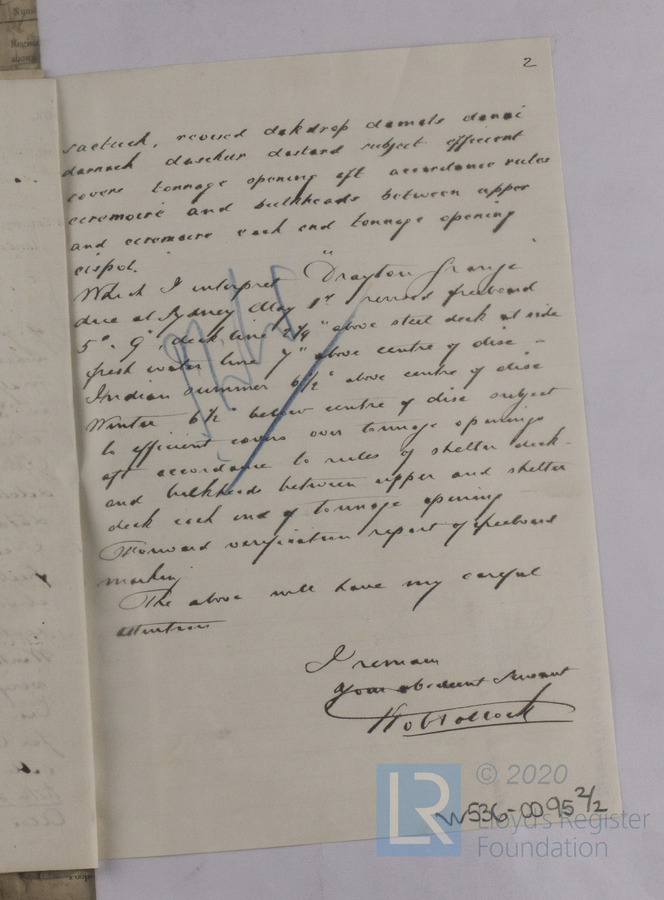 2
sactuch, revised dakdrop damals danni
darnach daschen dastard subject efficient
covers tonnage opening aft accordance rules
ceremoire and bulkheads between upper
and ceremoire each end tonnage opening
cispol.
Which I interpret "Drayton Grange"
due at Sydney May 1st revised freeboard
5'. 9", deck line 2¼" above steel deck at side
fresh water line 7" above centre of disc -
Indian summer 6½" above centre of disc
Winter 6½ below centre of disc subject
to efficient covers over tonnage openings
aft accordance to rules of shelter deck -
and bulkheads between upper and shelter
deck each end of tonnage opening
Forward verification report of freeboard
marking
The above will have my careful
attention
I remain
Your obedient Servant
LR
© 2020
Lloyd's Register
Foundation
W536-0095 2/2